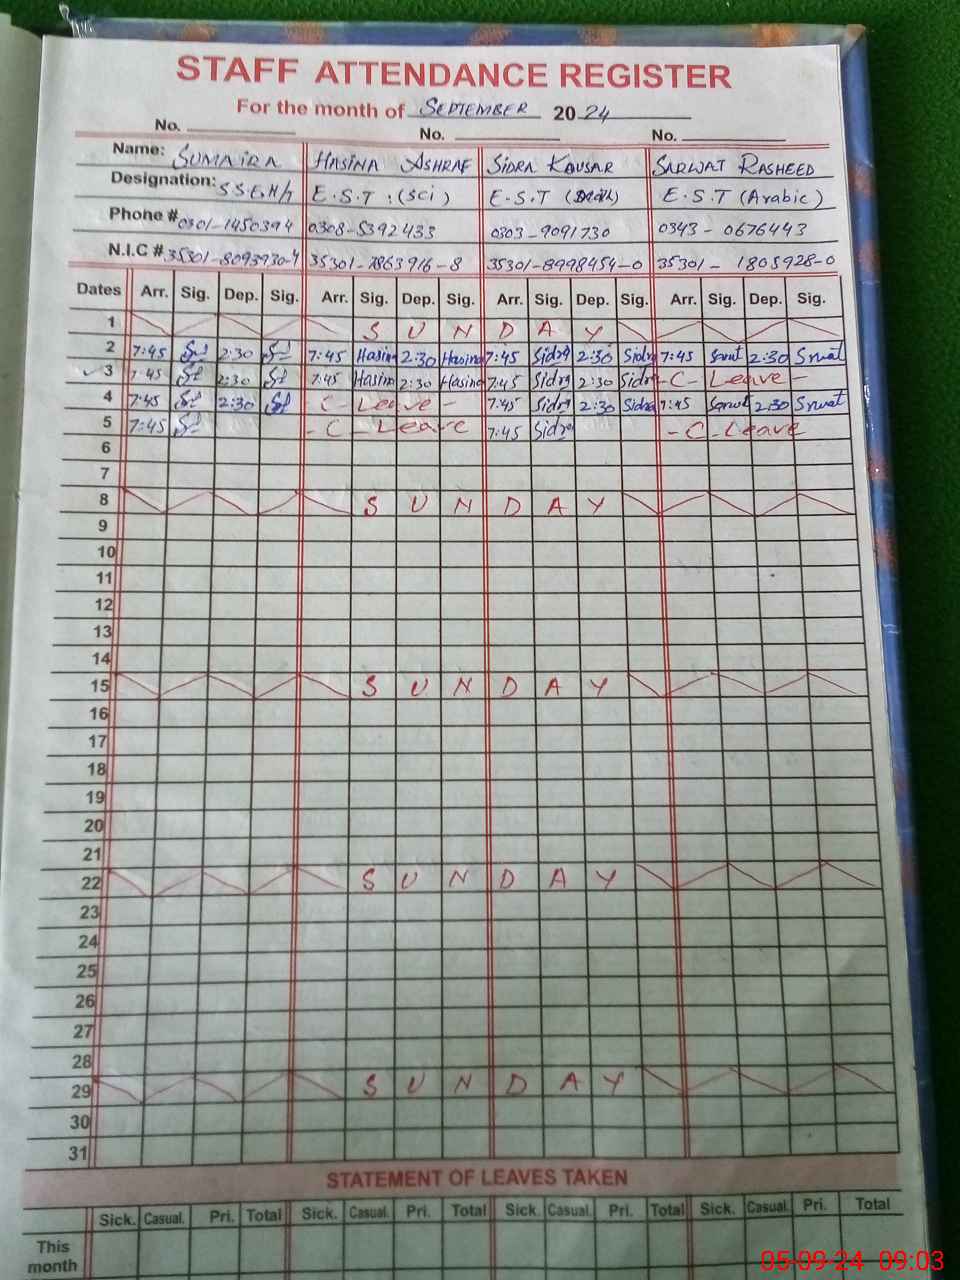 STAFF ATTENDANCE REGISTER
For the month of SEPTEMBER 2024
No. No. No.
Name: SUMAIRA HASINA ASHRAF SIDRA KAUSAR SARWAT RASHEED
Designation: E.S.T : (Sci) E.S.T E.S.T (Arabic)
Phone # 0301-1450394 0308-5392433 0303-9091730 0343-0676443
N.I.C # 35301-8093930-4 35301-7863916-8 35301-8998454-0 35301-1805928-0
Dates Arr. Sig. Dep. Sig. Arr. Sig. Dep. Sig. Arr. Sig. Dep. Sig. Arr. Sig. Dep. Sig.
1 S U N D A Y
2 7:45 2:30 7:45 Hasina 2:30 Hasina 7:45 Sidra 2:30 Sidra 7:45 2:30
3 7:45 2:30 7:45 Hasina 2:30 Hasina 7:45 Sidra 2:30 Sidra -C- Leave -
4 7:45 2:30 -C- Leave - 7:45 Sidra 2:30 Sidra 7:45 2:30
5 7:45 -C-Leave 7:45 Sidra -C-Leave
6
7
8 S U N D A Y
9
10
11
12
13
14
15 S U N D A Y
16
17
18
19
20
21
22 S U N D A Y
23
24
25
26
27
28
29 S U N D A Y
30
31
STATEMENT OF LEAVES TAKEN
Sick. Casual. Pri. Total Sick. Casual. Pri. Total Sick. Casual. Pri. Total Sick. Casual. Pri. Total
This
month
05-09-24 09:03